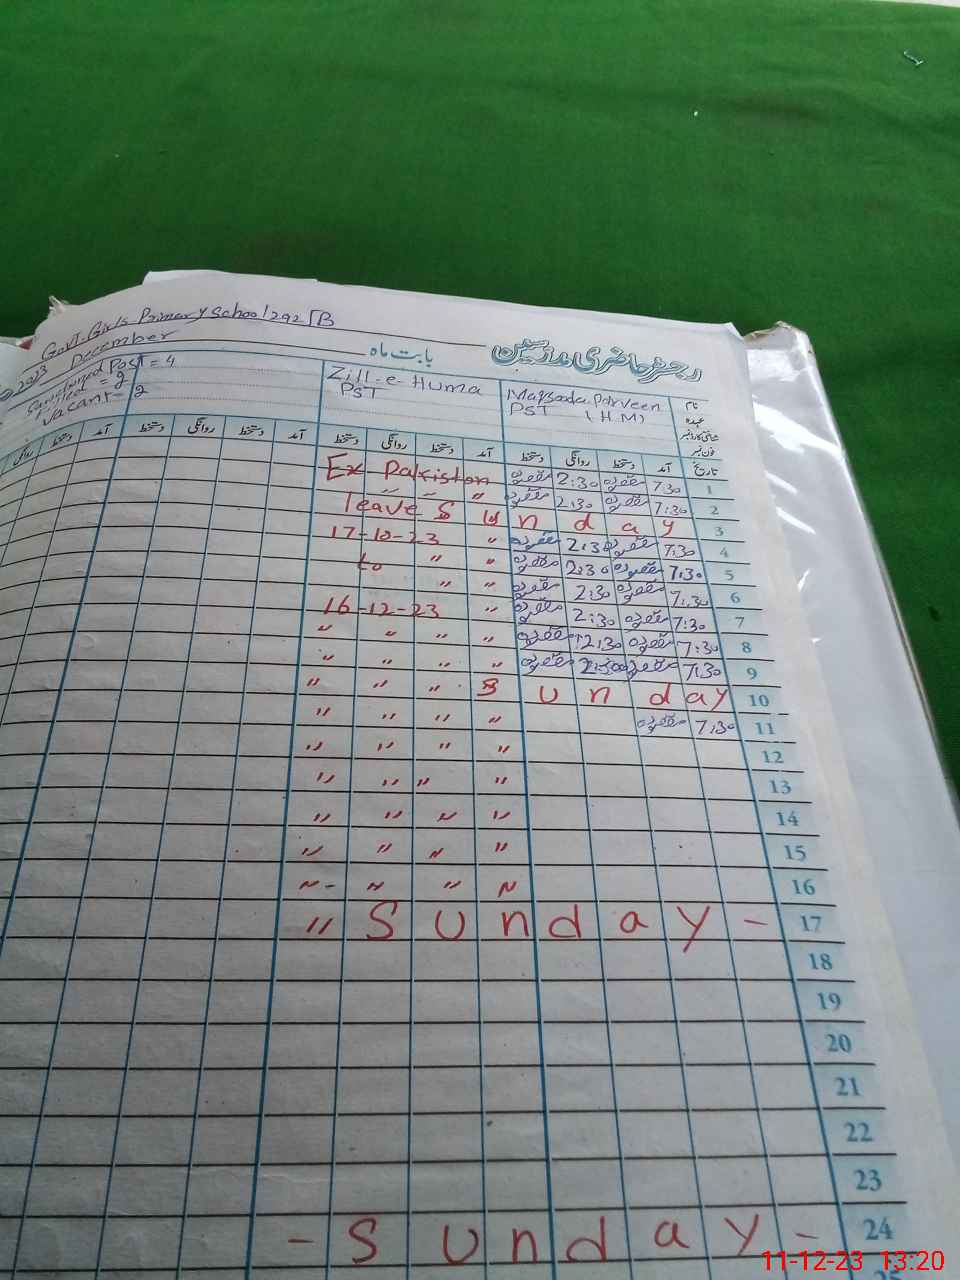 Govt. Girls Primary School 292 JB
رجسٹر حاضری مدرسین بابت ماہ
December 2023
Sanctioned Post = 4
Vacant = 2
Zill-e-Huma
PST
Maqsooda Parveen
PST (HM)
نام
عہدہ
شناختی کارڈ نمبر
فون نمبر
تاریخ آمد دستخط روانگی دستخط آمد دستخط روانگی دستخط آمد دستخط روانگی دستخط آمد دستخط روانگی
Ex Pakiston 2:30 7:30 1
" 2:30 7:30 2
leave Sunday 3
17-10-23 " 2:30 7:30 4
to " " 2:30 7:30 5
" " 2:30 7:30 6
16-12-23 " 2:30 7:30 7
" " " " 2:30 7:30 8
" " " " 2:30 7:30 9
" " " Sunday 10
" " " " 7:30 11
" " " " 12
" " " " 13
" " " " 14
" " " " 15
" " " " 16
" Sunday - 17
18
19
20
21
22
23
- Sunday - 24
11-12-23 13:20